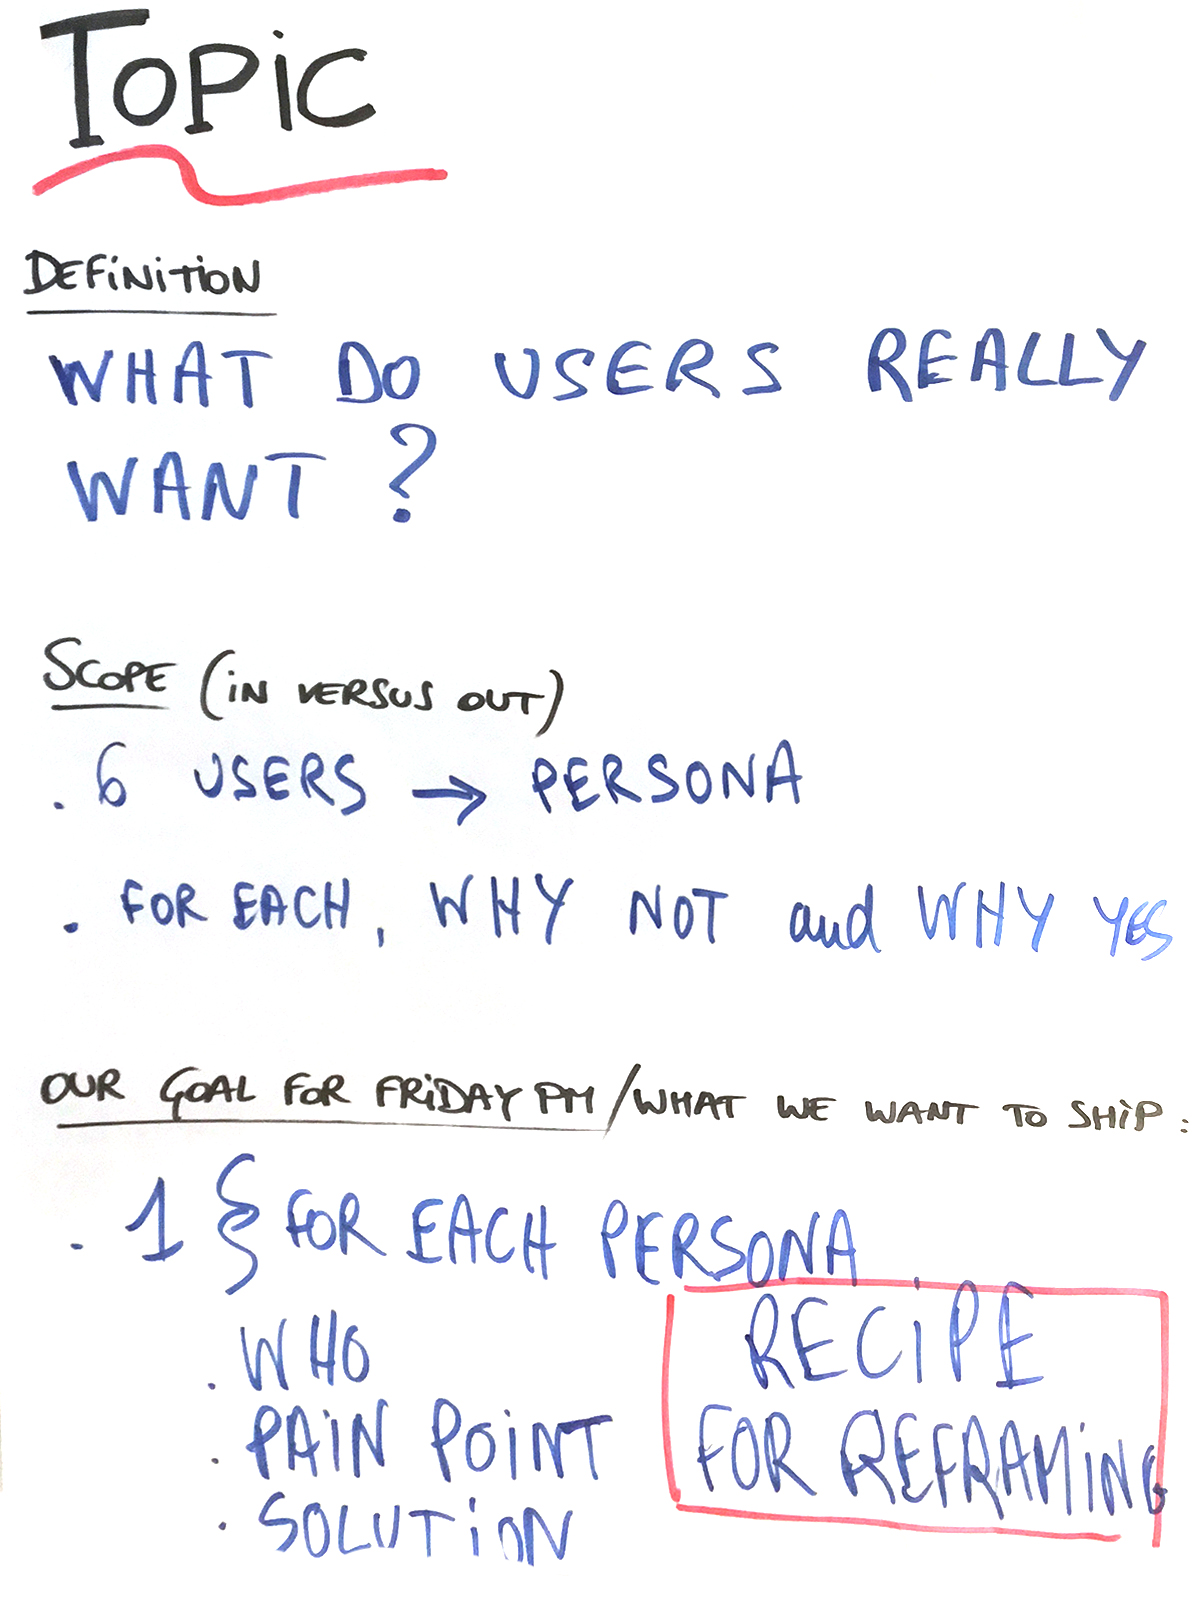 TOPiC
DEFiNiTiON
WHAT DO USERS REALLY
WANT ?
SCOPE (iN VERSUS OUT)
. 6 USERS → PERSONA
. FOR EACH, WHY NOT and WHY YES
OUR GOAL FOR FRiDAY PM / WHAT WE WANT TO SHiP :
. 1 } FOR EACH PERSONA
. WHO
. PAiN POiNT
. SOLUTiON
RECiPE
FOR REFRAMiNG